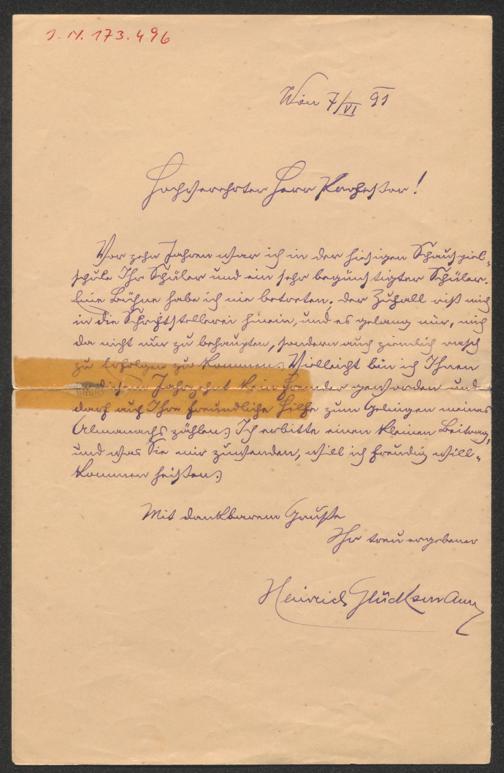 J. N. 173.496
Wien 7/VI 91
Hochverehrter Herr Professor!
Vor zehn Jahren war ich in der hiesigen Schauspiel-
schule Ihr Schüler und ein sehr begünstigter Schüler.
Eine Bühne habe ich nie betreten. Der Zufall riß mich
in die Schriftstellerei hinein, und es gelang mir, mich
da nicht nur zu behaupten, sondern auch ziemlich rasch
zu Erfolgen zu kommen. Vielleicht bin ich Ihnen
in diesem Jahrzehnt kein Fremder geworden und
darf auf Ihre freundliche Hilfe zum Gelingen meines
Almanachs zählen. Ich erbitte einen kleinen Beitrag,
und was Sie mir zuwenden, will ich freudig will-
kommen heißen.
Mit dankbarem Gruße
Ihr treu ergebener
Heinrich Glücksmann